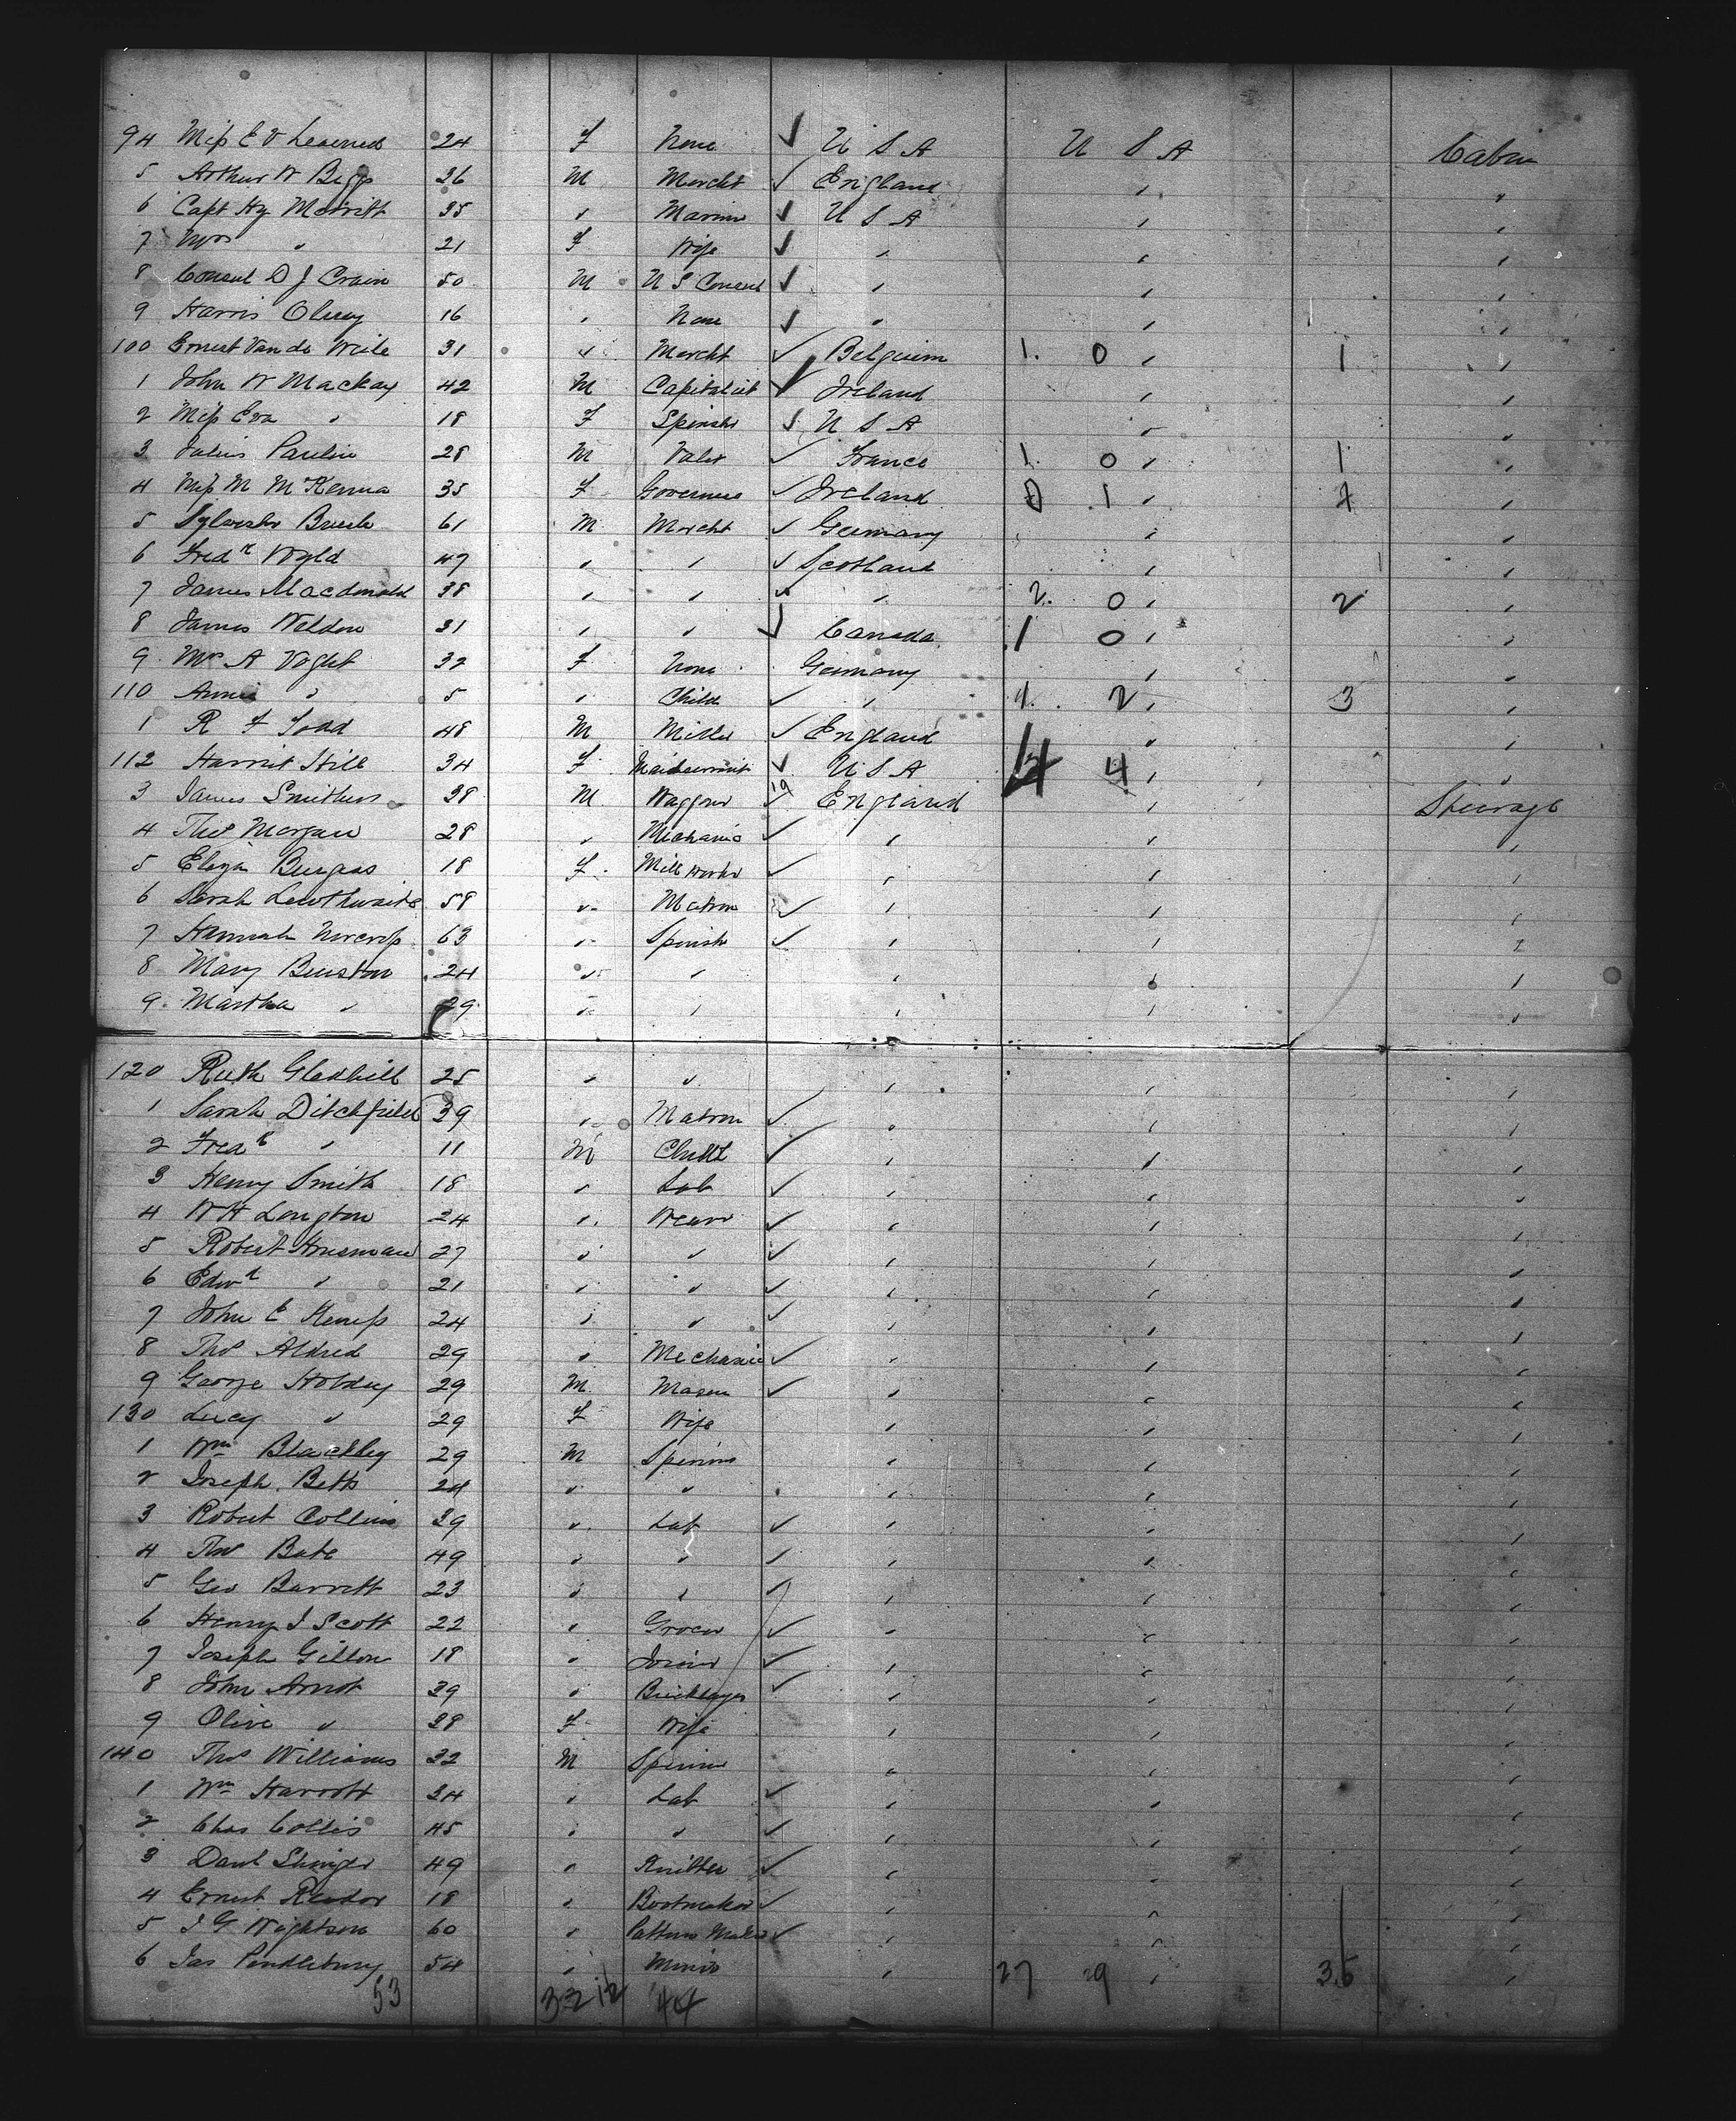 94 Miss E V Learned 24 F None ✓ U S A U S A Cabin
5 Arthur W Begg 26 M Mercht ✓ England " "
6 Capt Hy Merritt 35 " Marine ✓ U S A " "
7 Mrs " 21 F Wife ✓ " " "
8 Consul D J Crain 50 M U S Consul ✓ " " "
9 Harris Olney 16 " None ✓ " " "
100 Ernest Van de Weile 31 " Mercht ✓ Belgium 1. 0 " 1 "
1 John W Mackay 42 M Capitalist ✓ Ireland " "
2 Miss Eva " 18 F Spinster ✓ U S A " "
3 Julius Paulin 28 M Valet ✓ France 1. 0 " 1 "
4 Miss M McKenna 35 F Governess ✓ Ireland 1 "
5 Sylvester Brush 61 M Mercht ✓ Germany " "
6 Fredk Wyld 47 " " ✓ Scotland " "
7 James Macdonald 38 " " ✓ " 2. 0 " 2 "
8 James Weldon 31 " " ✓ Canada 1 0 " "
9 Mrs A Voght 32 F None Germany " "
110 Annie " 5 " Child ✓ " 1. 2 " 3 "
1 R F Todd 48 M Miller ✓ England " "
112 Harriet Hill 34 F Maidservant ✓ U S A 4 " "
3 James Smithers 38 M ✓ England " Steerage
4 Thos Morgan 28 " Mechanic ✓ " " "
5 Eliza Burgess 18 F Mill worker ✓ " " "
6 Sarah Lewthwaite 58 " Matron ✓ " " "
7 Hannah Norcrop 63 " Spinster ✓ " " "
8 Mary Buiston 24 " " " " "
9 Martha " 29 " " " " "
120 Ruth Gledhill 25 " " " " "
1 Sarah Ditchfield 39 " Matron ✓ " " "
2 Fredk " 11 M Child ✓ " " "
3 Henry Smith 18 " Lab ✓ " " "
4 W H Longton 24 " Weaver ✓ " " "
5 Robert Horsman 27 " " ✓ " " "
6 Edwd " 21 " " ✓ " " "
7 John E Kemp 24 " " ✓ " " "
8 Thos Aldred 29 " Mechanic ✓ " " "
9 George Holdey 29 M Mason ✓ " " "
130 Lucy " 29 F Wife " " "
1 Wm Blackley 29 M Spinner " " "
2 Joseph Betts 24 " " " " "
3 Robert Collins 39 " Lab ✓ " " "
4 Thos Bate 49 " " ✓ " " "
5 Geo Barrett 23 " " ✓ " " "
6 Henry J Scott 22 " Grocer ✓ " " "
7 Joseph Gilton 18 " Joiner ✓ " " "
8 John Arnot 39 " Bricklayer ✓ " " "
9 Olive " 38 F Wife " " "
140 Thos Williams 32 M Spinner " " "
1 Wm Harrott 34 " Lab ✓ " " "
2 Chas Collis 45 " " ✓ " " "
3 Danl Stinger 49 " Knitter ✓ " " "
4 Ernest Reador 18 " Bootmaker ✓ " " "
5 J G Wightson 60 " Pattern Maker ✓ " " "
6 Jas Pendlebury 54 " Miner " 27 29 " 36 "
53 32 12 44